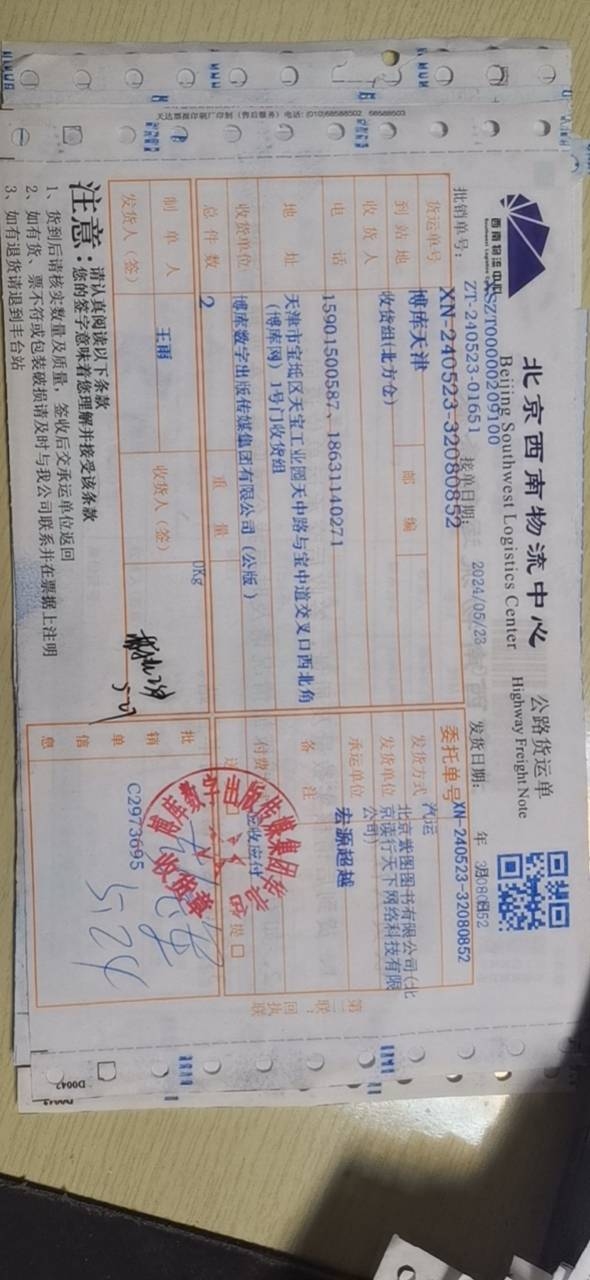 天达票据印刷厂印制 (售后服务) 电话: (010)68588502 68588503
西南物流中心
北京西南物流中心
Beijing Southwest Logistics Center
公路货运单
Highway Freight Note
XSZT00000209100
批销单号: ZT-240523-01651
接单日期: 2024/05/23
发货日期: 年
货运单号 XN-240523-32080852
委托单号 XN-240523-32080852
到站地 博库天津
邮编
发货方式 汽运
收货人 收货组(北方仓)
发货单位 北京紫图图书有限公司(北京读行天下网络科技有限公司)
电话 15901500587、18631140271
承运单位 宏源超越
地址 天津市宝坻区天宝工业园天中路与宝中道交叉口西北角(博库网) 1号门收货组
备注
收货单位 博库数字出版传媒集团有限公司（公版）
付费
应收应付
总件数 2
重量 0Kg
送
提
制单人 王雨
收货人（签）
发货人（签）
5.27
批销单信息
C2973695
5.24
博库数字出版传媒集团
收货章
第二联：回执联
注意: 请认真阅读以下条款
您的签字意味着您理解并接受该条款
1、货到后请核实数量及质量，签收后交承运单位返回
2、如有货、票不符或包装破损请及时与我公司联系并在票据上注明
3、如有退货请退到丰台站
D0042